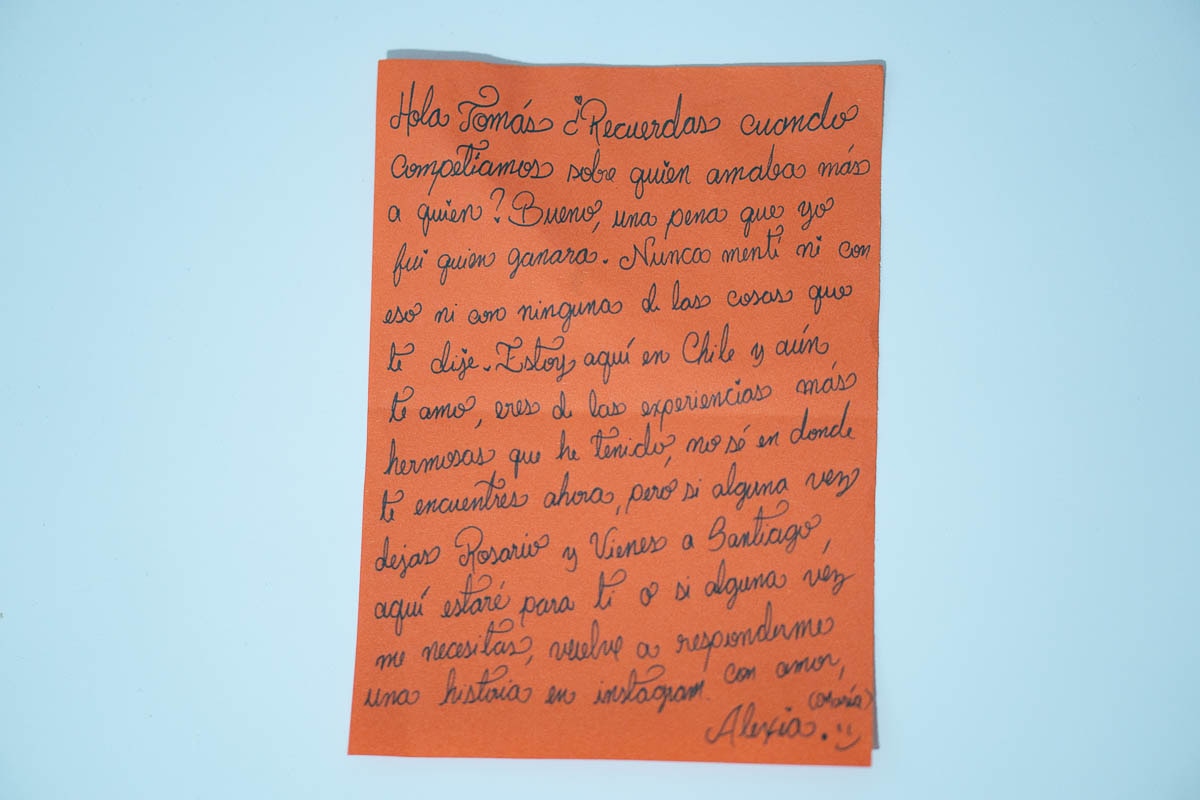 Hola Tomás ¿Recuerdas cuando
competiamos sobre quien amaba más
a quien? Bueno, una pena que yo
fui quien ganara. Nunca mentí ni con
eso ni con ninguna de las cosas que
te dije. Estoy aquí en Chile y aún
te amo, eres de las experiencias más
hermosas que he tenido, no sé en donde
te encuentres ahora, pero si alguna vez
dejas Rosario y Vienes a Santiago,
aquí estaré para ti o si alguna véz
me necesitas, vuelve a responderme
una historia en instagram. con amor,
(María)
Alexia. :)